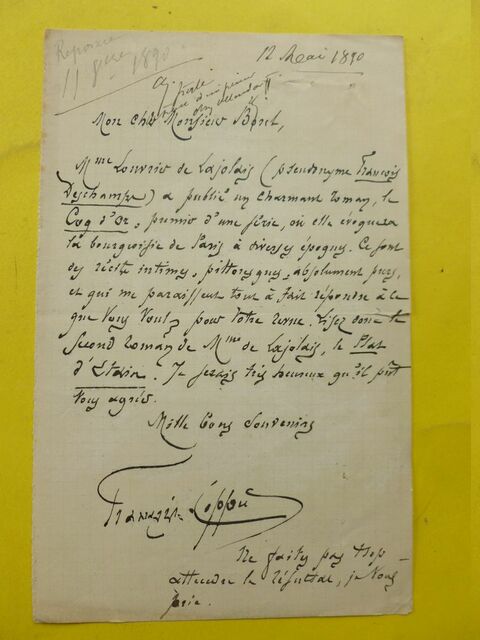 Réponse
11 8bre 1890
12 Mai 1890
Mon cher Monsieur Bonet,
Mme Louvrier de Lajolais (pseudonyme François
Deschamps) a publié un charmant roman, le
Coq d'Or, premier d'une série, où elle évoquera
la bourgeoisie de Paris à diverses époques. Ce sont
des récits intimes, pittoresques, absolument purs,
et qui me paraissent tout à fait répondre à ce
que vous voulez pour votre revue. Lisez donc le
second roman de Mme de Lajolais, le Plat
d'Etain. Je serais très heureux qu'il pût
vous agréer.
Mille bons souvenirs
François Coppée
Ne faites pas trop
attendre le résultat, je vous
prie.